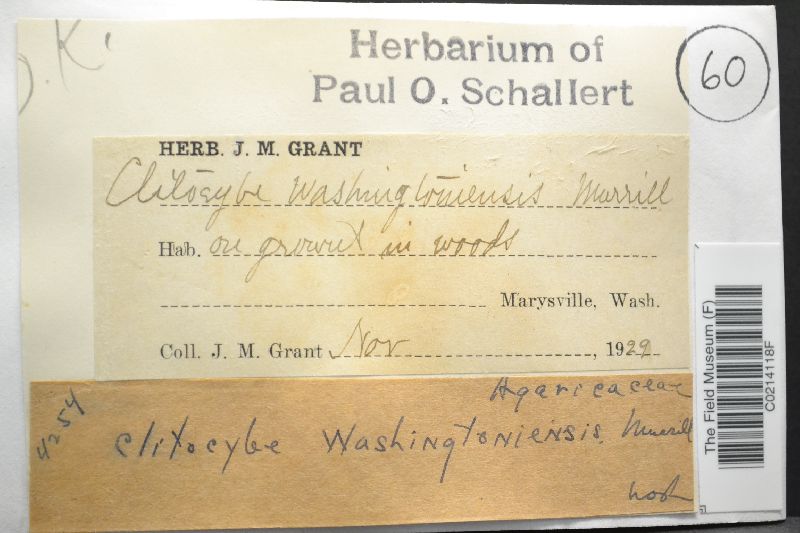 O.K.
Herbarium of
Paul O. Schallert
60
HERB. J. M. GRANT
Clitocybe Washingtoniensis Murrill
Hab. on ground in woods
Marysville, Wash.
Coll. J. M. Grant Nov , 1929
Agaricaceae
4254
Clitocybe Washingtoniensis. Murrill
The Field Museum (F)
C0214118F